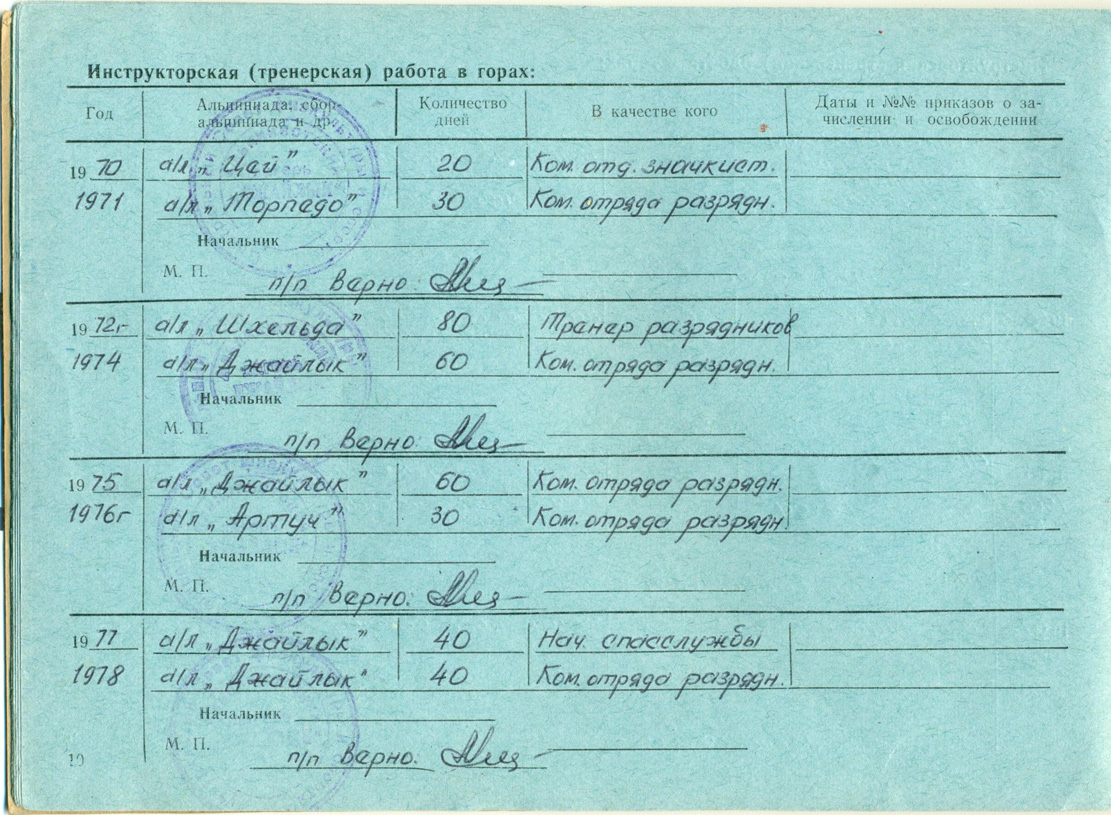 Инструкторская (тренерская) работа в горах:
Год Альпиниада, сбор, альпиниада и др. Количество дней В качестве кого Даты и №№ приказов о зачислении и освобождении
1970 а/л „Цей” 20 Ком. отд. значкист.
1971 а/л „Торпедо” 30 Ком. отряда разрядн.
Начальник
М. П. п/п Верно:
1972г а/л „Шхельда” 80 Тренер разрядников
1974 а/л „Джайлык” 60 Ком. отряда разрядн.
Начальник
М. П. п/п Верно:
1975 а/л „Джайлык” 60 Ком. отряда разрядн.
1976г а/л „Артуч” 30 Ком. отряда разрядн.
Начальник
М. П. п/п Верно:
1977 а/л „Джайлык” 40 Нач. спасслужбы
1978 а/л „Джайлык” 40 Ком. отряда разрядн.
Начальник
М. П. п/п Верно.
10